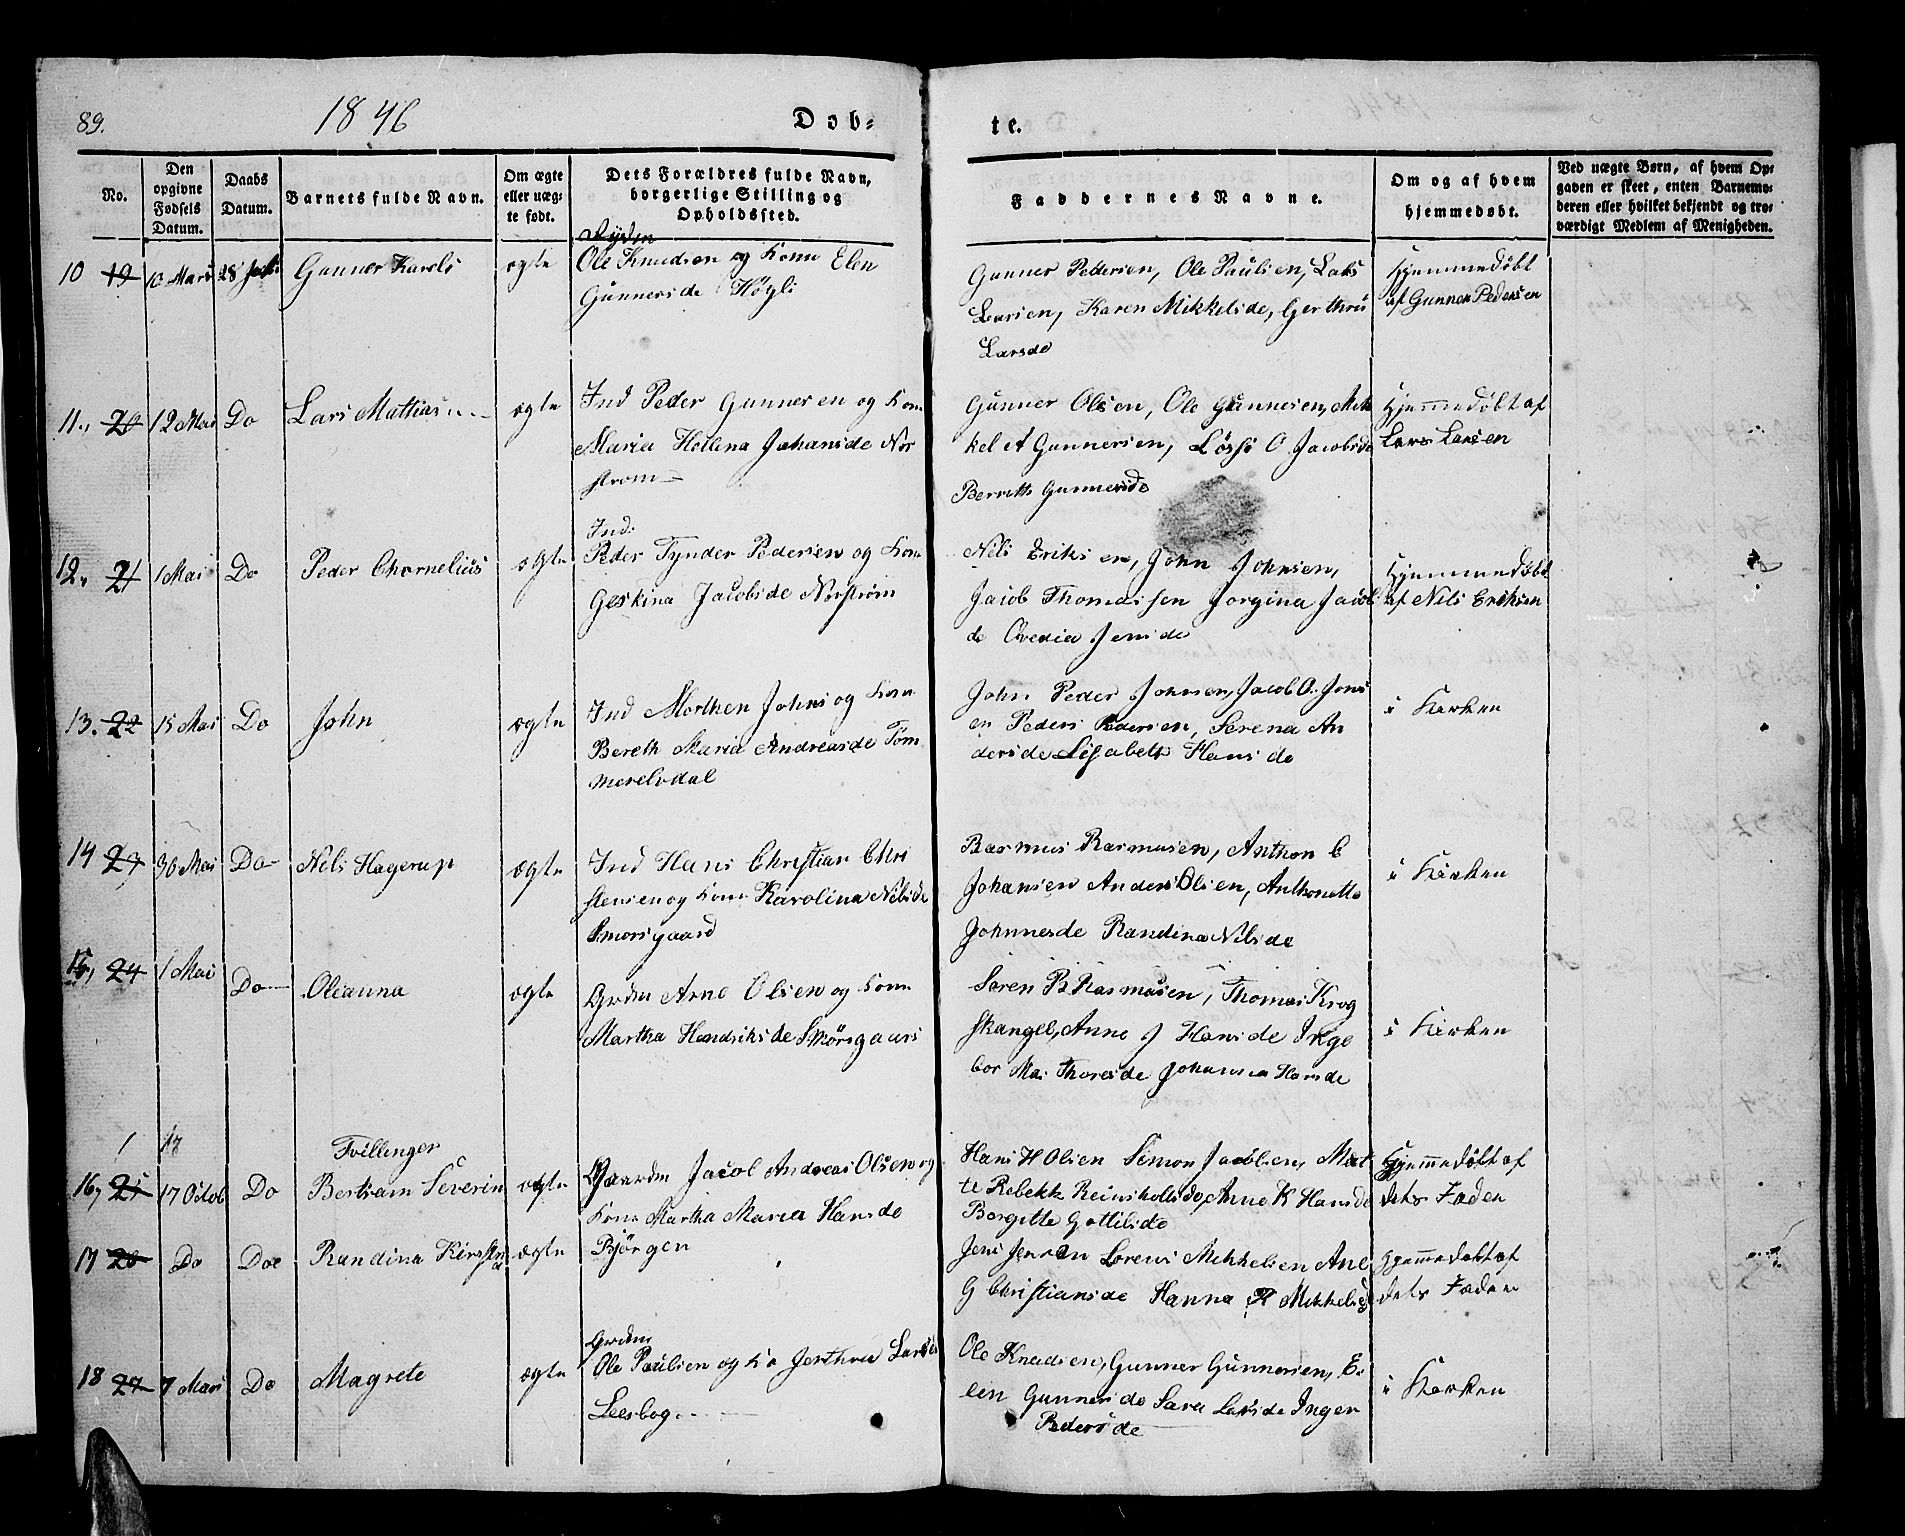 89.
1846
Døb-
te.
No.
Den opgivne Fødsels Datum.
Daabs Datum.
Barnets fulde Navn.
Om ægte eller uægte født.
Dets Forældres fulde Navn, borgerlige Stilling og Opholdssted.
Faddernes Navne.
Om og af hvem hjemmedøbt.
Ved uægte Børn, af hvem Opgaven er skeet, enten Barnemoderen eller hvilket bekjendt og troværdigt Medlem af Menigheden.
10 19 10 Mars 28 Gunner Karels ægte
Ole Knudsen og Kone Elen
Gunnersde Høgli
Gunner Pedersen, Ole Paulsen, Lars
Larsen, Karen Mikkelsde, Gerthru
Larsde
Hjemmedøbt
af Gunner Pedersen
11., 20 12 Mai Do Lars Mattias ægte
Ind Peder Gunnersen og Kone
Maria Hellena Johansde Nor
strøm
Gunner Olsen, Ole Gunnersen, Mik
kel et Gunnersen, O Jacobsde
Berrith Gunnersde
Hjemmedøbt af
Lars Larsen
12., 21 1 Mai Do Peder Chornelius ægte
Ind:
Peder Tynder Pedersen og Kone
Geskina Jacobsde Norstrøm
Nils Eriksen, John Johnsen,
Jacob Thomassen Jorgina Jacob
de Ovedia Jensde
Hjemmedøbt
af Nils Eriksen
13. 22 15 Mai Do John ægte
Ind Morthen Johns og Kone
Bereth Maria Andreasde Tøm
merelvdal
John Peder Johnsen, Jacob O. Jons
en Peders Pedersen, Serena An
dersde Lisabeth Hansde
i Kirken
14 23 30 Mai Do Nils Hagerup ægte
Ind Hans Christian Chri
stensen og Kone Karolina Nilsde
Smorsgaard
Rasmus Rasmusen, Anthon C
Johansen Anders Olsen, Anthonette
Johnnesde Randina Nilsde
i Kirken
15, 24 1 Mai Do Olianna ægte
Grdm Arne Olsen og Kone
Martha Hendriksde Smørsgaard
Søren P. Rasmusen, Thomas Krog
Skangel, Anne J Hansde Inge
bor Ma: Thoresde Johanna Hansde
i Kirken
1 17
Tvillinger
16, 25 17 Octob Do Bertram Severin ægte
Gaardm Jacob Andreas Olsen og
Kone Martha Maria Hansde
Bjørgen
Hans H Olsen Simon Jacobsen, Mat
te Rebekk Reinsholtsde, Anne K Hansde
Borgitte Gottilsde
Hjemmedøbt af
dets Fader
17 26 Do Doe Randina Kirstina ægte
Jens Jensen Lorens Mikkelsen Ane
G Christiansde Hanna P Mikkelsd
Hjemmedøbt af
dets Fader
18 27 7 Mars Do Magrete ægte
Grdm
Ole Paulsen og Ko Jerthrue Larsde
Leesbog
Ole Knudsen, Gunner Gunnersen, E
len Gunnersde Sara Larsde Inger
Pedersde
i Kirken